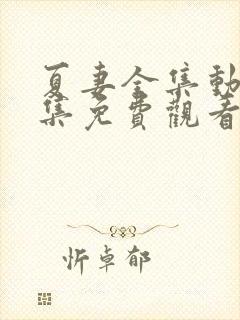 夏妻全集動
集免費觀看
忻卓郁